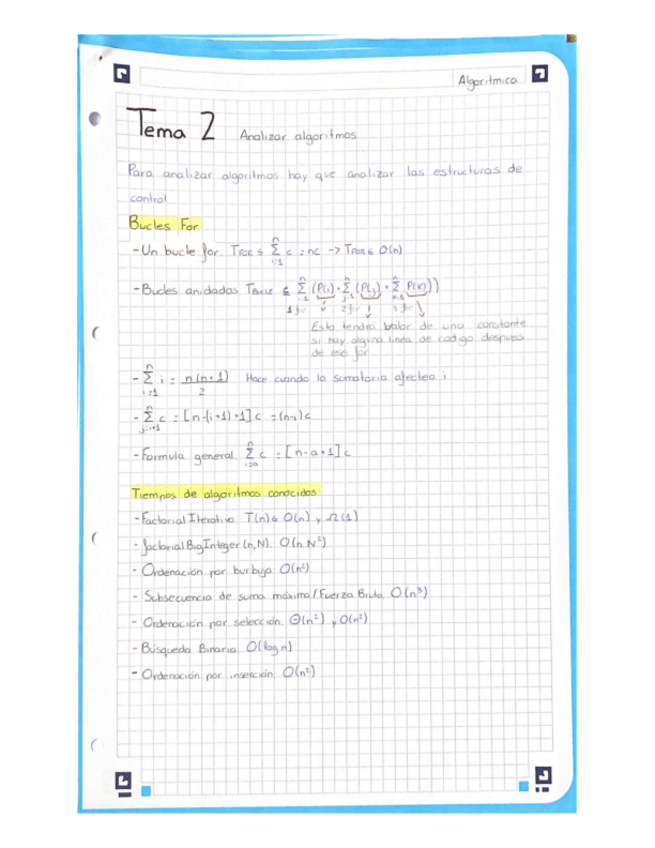 Algorítmica
Tema 2 Analizar algoritmos
Para analizar algoritmos hay que analizar las estructuras de
control
Bucles For
- Un bucle for. TFOR ≤ Σ(i=1..n) c = nc -> TFOR ∈ O(n)
- Bucles anidados TBucle ≤ Σ(i=1..n) (P(i) + Σ(j=1..n) (P(j) + Σ(k=1..n) P(k)))
1 for 2 for 3 for
Esto tendrá balor de una constante
si hay alguna linea de codigo despues
de ese for
- Σ(i=1..n) i = n(n+1)/2 Hace cuando la sumatoria afectea i
- Σ(j=i+1..n) c = [n-(i+1)+1]c = (n-i)c
- Formula general Σ(i=a..n) c = [n-a+1]c
Tiempos de algoritmos conocidos
- Factorial Iterativo. T(n) ∈ O(n) y Ω(1)
- factorialBigInteger (n,N). O(n N²)
- Ordenación por burbuja O(n²)
- Subsecuencia de suma máxima/Fuerza Bruta. O(n³)
- Ordenación por selección. Θ(n²) y O(n²)
- Búsqueda Binaria O(log n)
- Ordenación por inserción O(n²)